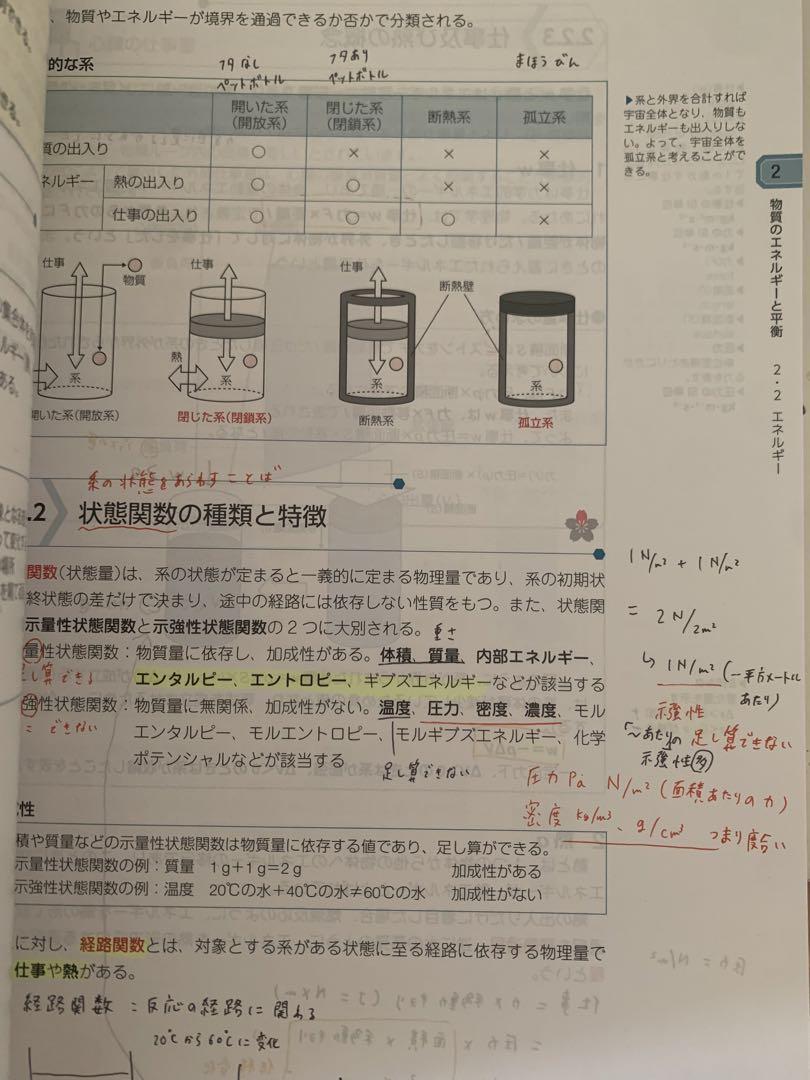 、物質やエネルギーが境界を通過できるか否かで分類される。
的な系
フタなし
ペットボトル
フタあり
ペットボトル
まほうびん
開いた系
(開放系)
閉じた系
(閉鎖系)
断熱系
孤立系
質の出入り ○ × × ×
ネルギー 熱の出入り ○ ○ × ×
仕事の出入り ○ ○ ○ ×
仕事
物質
系
開いた系(開放系)
仕事
熱
系
閉じた系(閉鎖系)
仕事
系
断熱系
断熱壁
系
孤立系
▶系と外界を合計すれば
宇宙全体となり、物質も
エネルギーも出入りしな
い。よって、宇宙全体を
孤立系と考えることがで
きる。
2
物質のエネルギーと平衡
2・2 エネルギー
系の状態をあらわすことば
.2 状態関数の種類と特徴
関数(状態量)は、系の状態が定まると一義的に定まる物理量であり、系の初期状
終状態の差だけで決まり、途中の経路には依存しない性質をもつ。また、状態関
示量性状態関数と示強性状態関数の2つに大別される。
重さ
量性状態関数：物質量に依存し、加成性がある。体積、質量、内部エネルギー、
足し算できる
エンタルピー、エントロピー、ギブズエネルギーなどが該当する
強性状態関数：物質量に無関係、加成性がない。温度、圧力、密度、濃度、モル
できない
エンタルピー、モルエントロピー、モルギブズエネルギー、化学
ポテンシャルなどが該当する
足し算できない
1N/m² + 1N/m²
= 2N/2m²
↳ 1N/m² (一平方メートル
あたり)
示強性
「〜あたり」の足し算できない
示強性多
圧力 Pa N/m² (面積あたりの力)
密度 kg/m³、g/cm³ つまり度合い
性
積や質量などの示量性状態関数は物質量に依存する値であり、足し算ができる。
示量性状態関数の例：質量 1g＋1g＝2g 加成性がある
示強性状態関数の例：温度 20℃の水＋40℃の水≠60℃の水 加成性がない
に対し、経路関数とは、対象とする系がある状態に至る経路に依存する物理量で
仕事や熱がある。
経路関数：反応の経路に関わる
20℃から60℃に変化